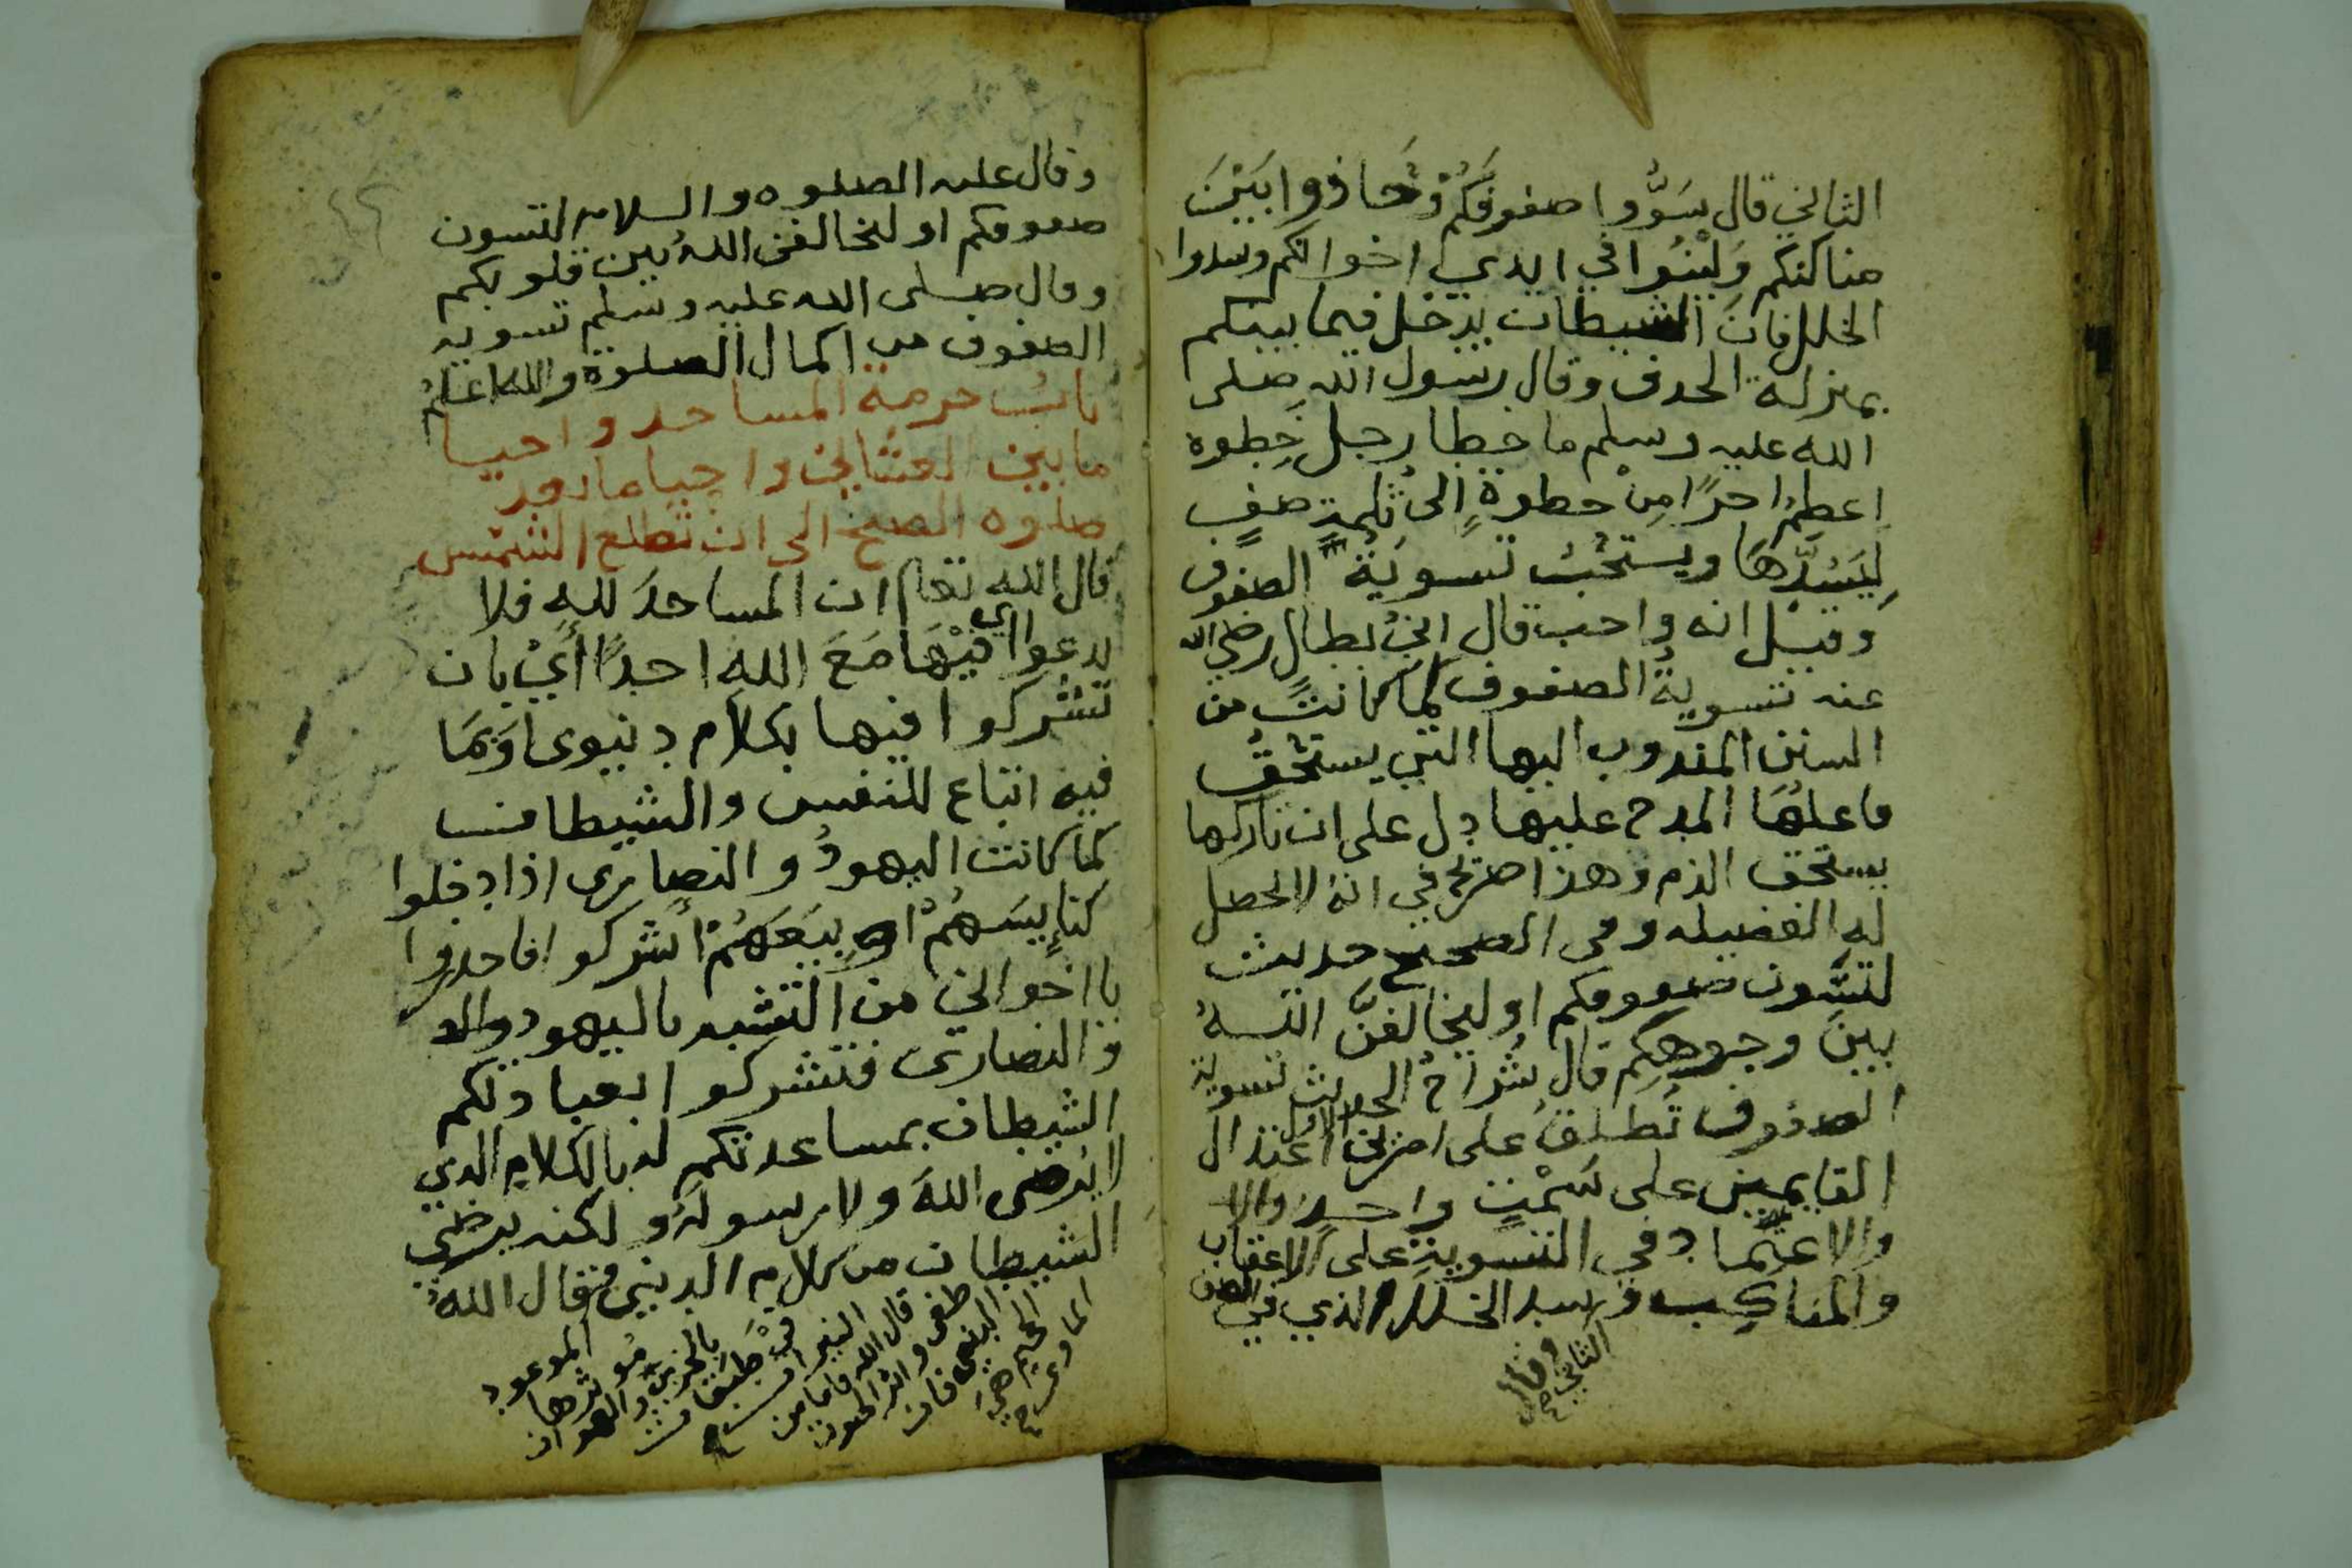 الثاني قال سَوُّوا صفوفَكُمْ وَحَاذوا بَيْنَ
مناكبكم وَلِيْنُوا في ايدي اخوانكم وسدوا
الخلل فانَ الشيطان يدخل فيما بينكم
بمنزلة الحدف وقال رسول الله صلى
الله عليه وسلم ما خطا رجل خطوه
اعظمُ اجرًا مِنْ خطوةٍ الى ثلمةِ صفٍ
لِيَسُدَّهَا ويستحبُ تسويَةُ الصفوف
وقيل انه واجب قال ابنُ بطال رضي الله
عنه تسويةُ الصفوف لما كانت من
السنن المندوب اليها التي يستحق
فاعلهَا المدح عليها دل على ان تاركها
يستحق الذم وهذا صريح في انهُ لا تحصل
له الفضيله وفي الصحيح حديث
لتسَّون صفوفكم او ليخالفنَّ اللهُ
بين وجوهكم قال شُراحُ الحديث تسوية
الصفوف تُطلقُ على امرين الاول اعتدال
القايمين على سَمْتٍ واحدٍ والا
والاعتماد في التسويةِ على الاعقاب
والمناكب وسد الخلل الذي في الصف
الثاني
وقال
وقال عليه الصلوه والسلام لتسون
صفوفكم او ليخالفن اللهُ بين قلوبكم
وقال صلى الله عليه وسلم تسوية
الصفوف من اكمال الصلوة والله اعلمُ
بابُ حرمة المساجد واحيا
ما بين العشائين واحيا ما بعد
صلوه الصبح الى ان تطلع الشمس
قال الله تعا ان المساجدَ للهِ فلا
تدعوا اي فيْهَا مَعَ اللهِ احدًا أَيْ بان
تشركوا فيها بكلام دنيوى اوَ بمَا
فيه اتباع للنفس والشيطان
كما كانت اليهودُ والنصارى اذا دخلوا
كنايسَهُمْ او بِيَعَهُمْ اشركوا فاحذروا
يا اخواني من التشبه باليهود والد
والنصارى فتشركوا بعبادتكم
الشيطان بمساعدتكم له بالكلام الذي
لا يُرضى اللهَ ولا رسولَهُ ولكنه يرضي
الشيطان من كلام الدنيى فقال اللهُ
طغى واثر الحيوة
الدنيى فان
الجحيم هي
الماوى
قال الله فاما من
في طبقات
بالخزي والهوان
مُوثرها
الموعود